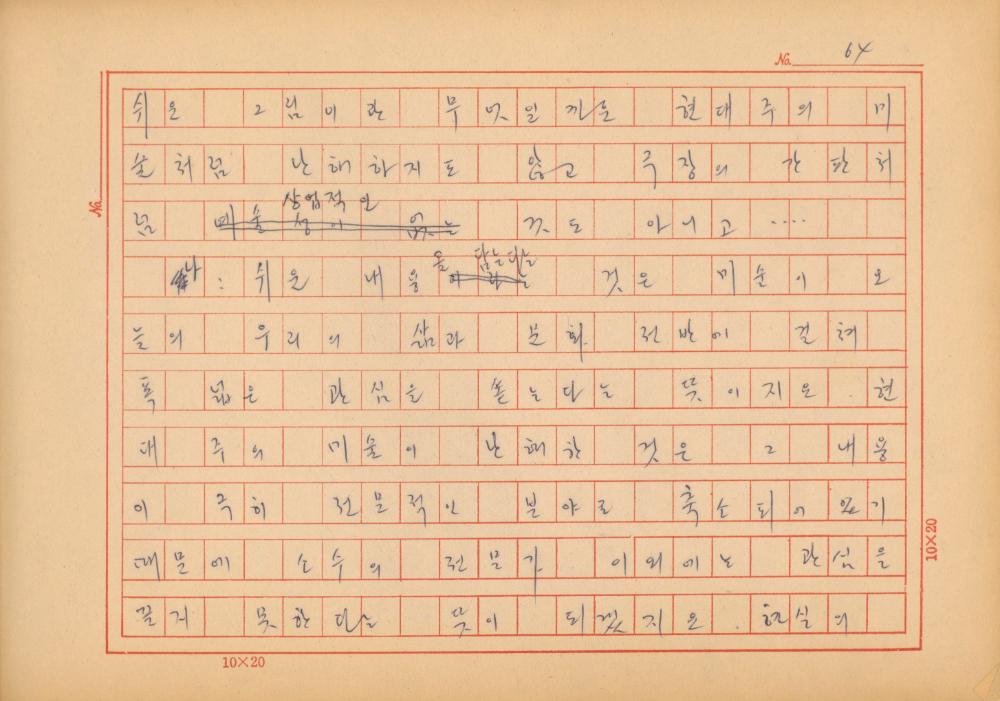 No. 64
쉬운 그림이란 무엇일까는 현대주의 미
술처럼 난해하지도 않고 극장의 간판처
상업적인
럼 예술성이 없는 것도 아니고 ‥‥
을 담는다는
나: 쉬운 내용이라는 것은 미술이 오
늘의 우리의 삶과 문화 전반에 걸쳐
폭 넓은 관심을 쏟는다는 뜻이지요. 현
대주의 미술이 난해한 것은 그 내용
이 극히 전문적인 분야로 축소되어 있기
때문에 소수의 전문가 이외에는 관심을
끌지 못한다는 뜻이 되겠지요. 현실의
No.
10×20
10×20